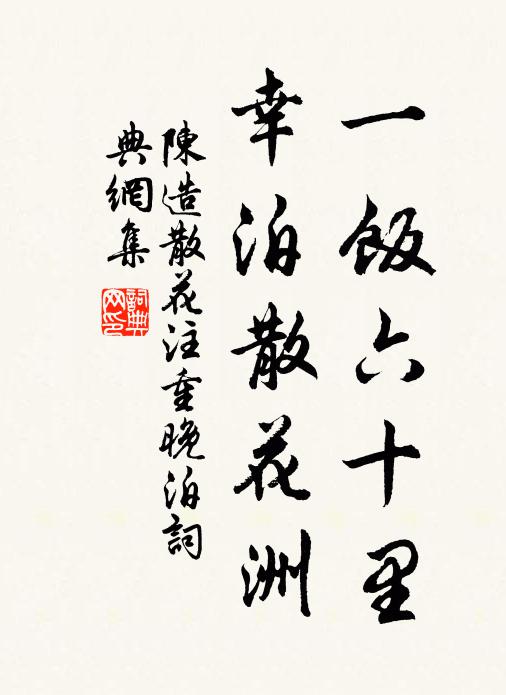 一飯六十里
幸泊散花洲
陳造散花注重晚泊詞
典網集
詞典網印